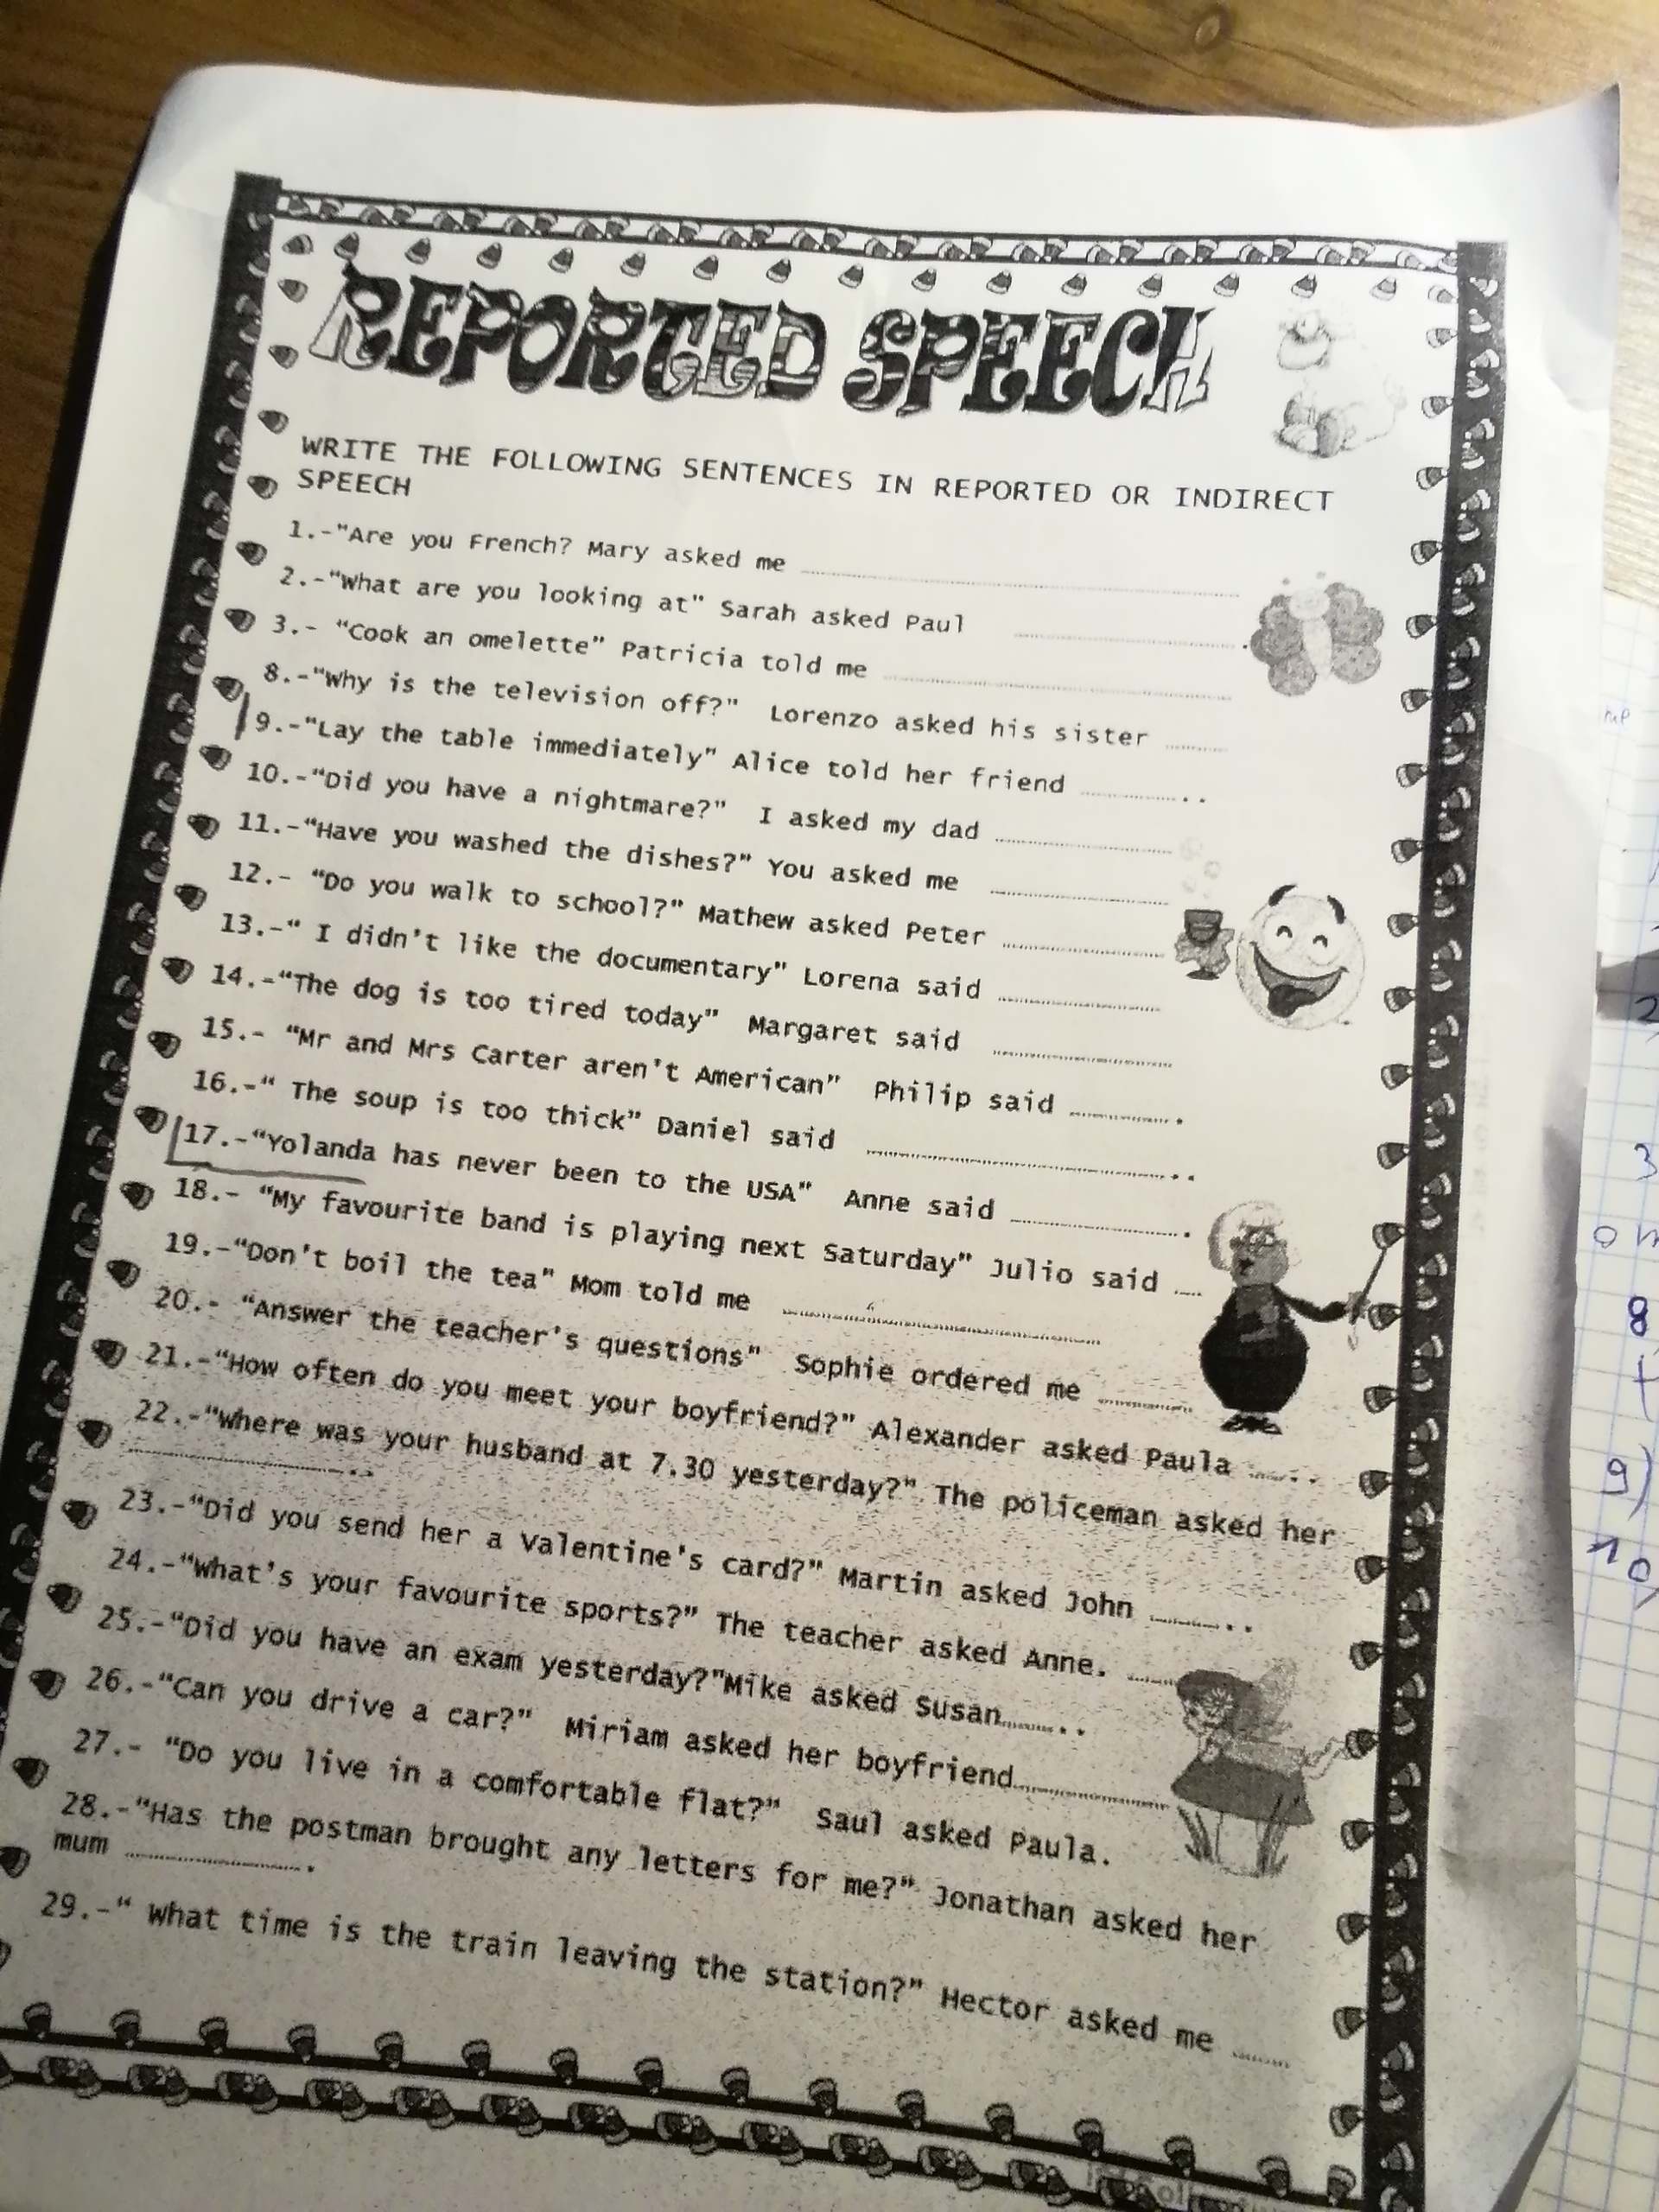 REPORTED SPEECH
WRITE THE FOLLOWING SENTENCES IN REPORTED OR INDIRECT
SPEECH
1.-"Are you French? Mary asked me ....................
2.-"What are you looking at" Sarah asked Paul ....................
3.- “Cook an omelette” Patricia told me ....................
8.-"Why is the television off?" Lorenzo asked his sister ..........
9.-"Lay the table immediately" Alice told her friend ..............
10.-"Did you have a nightmare?" I asked my dad ....................
11.-"Have you washed the dishes?" You asked me ....................
12.- “Do you walk to school?” Mathew asked Peter ....................
13.-“ I didn't like the documentary” Lorena said ....................
14.-“The dog is too tired today” Margaret said ....................
15.- “Mr and Mrs Carter aren't American” Philip said ..............
16.-“ The soup is too thick” Daniel said ....................
17.-“Yolanda has never been to the USA” Anne said ....................
18.- “My favourite band is playing next Saturday” Julio said ....
19.-“Don't boil the tea” Mom told me ....................
20.- “Answer the teacher's questions” Sophie ordered me ..........
21.-“How often do you meet your boyfriend?” Alexander asked Paula ........
22.-“Where was your husband at 7.30 yesterday?” The policeman asked her
....................
23.-“Did you send her a Valentine's card?” Martin asked John ..........
24.-“What's your favourite sports?” The teacher asked Anne. ......
25.-“Did you have an exam yesterday?”Mike asked Susan..........
26.-“Can you drive a car?” Miriam asked her boyfriend....................
27.- “Do you live in a comfortable flat?” Saul asked Paula.
28.-“Has the postman brought any letters for me?” Jonathan asked her
mum ....................
29.-“ What time is the train leaving the station?” Hector asked me ......
3
8
9)
10